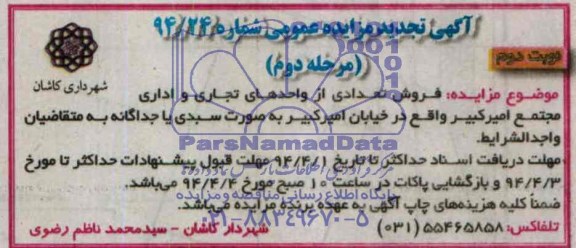 آگهی تجدید مزایده عمومی شماره ۹۴/۲۴
(مرحله دوم)
نوبت دوم
شهرداری کاشان
موضوع مزایده: فروش تعدادی از واحدهای تجاری و اداری
مجتمع امیرکبیر واقع در خیابان امیرکبیر به صورت سبدی یا جداگانه به متقاضیان
واجدالشرایط.
مهلت دریافت اسناد حداکثر تا تاریخ ۹۴/۴/۱ مهلت قبول پیشنهادات حداکثر تا مورخ
۹۴/۴/۳ و بازگشایی پاکات در ساعت ۱۰ صبح مورخ ۹۴/۴/۴ می‌باشد.
ضمنا کلیه هزینه‌های چاپ آگهی به عهده برنده مزایده می‌باشد.
تلفاکس: ۵۵۴۶۵۸۵۸ (۰۳۱)
شهردار کاشان - سیدمحمد ناظم رضوی
ParsNamadData
پایگاه اطلاع رسانی مناقصه و مزایده
۰۲۱-۸۸۳۴۹۶۷۰-۵